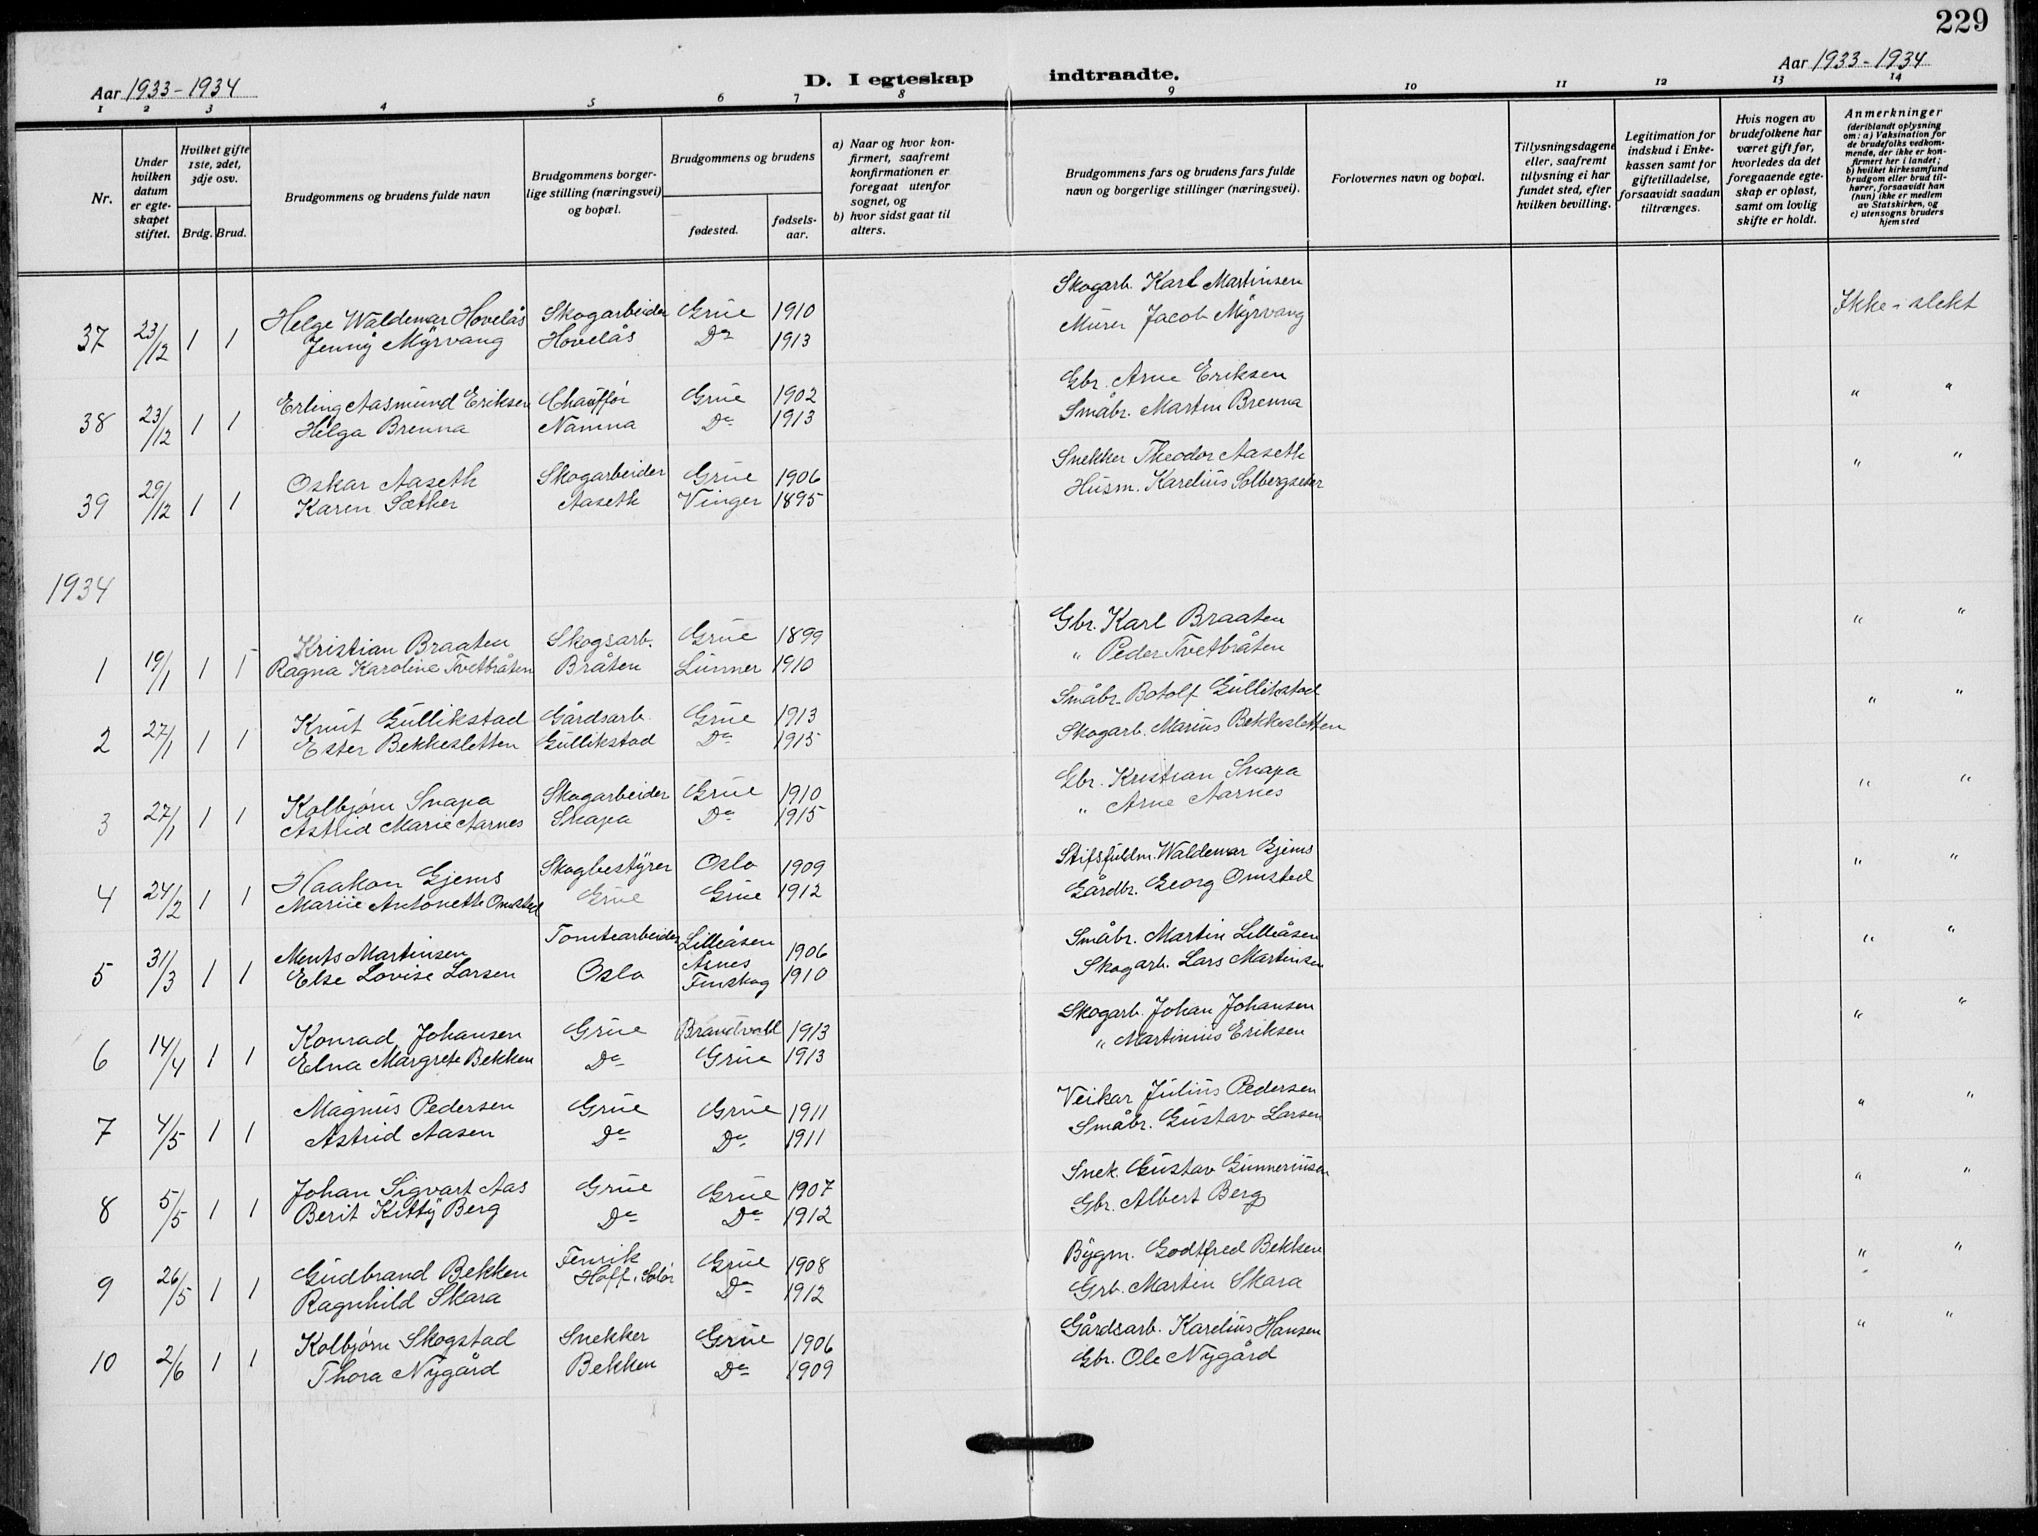 229
Aar 1933-1934
D. I egteskap indtraadte.
Aar 1933-1934
1 2 3 4 5 6 7 8 9 10 11 12 13 14
Nr.
Under hvilken datum er egteskapet stiftet.
Hvilket gifte 1ste, 2det, 3dje osv.
Brdg. Brud.
Brudgommens og brudens fulde navn
Brudgommens borgerlige stilling (næringsvei) og bopæl.
Brudgommens og brudens
fødested.
fødselsaar.
a) Naar og hvor konfirmert, saafremt konfirmationen er foregaat utenfor sognet, og
b) hvor sidst gaat til alters.
Brudgommens fars og brudens fars fulde navn og borgerlige stillinger (næringsvei).
Forlovernes navn og bopæl.
Tillysningsdagene eller, saafremt tillysning ei har fundet sted, efter hvilken bevilling.
Legitimation for indskud i Enkekassen samt for giftetilladelse, forsaavidt saadan tiltrænges.
Hvis nogen av brudefolkene har været gift før, hvorledes da det foregaaende egteskap er opløst, samt om lovlig skifte er holdt.
Anmerkninger
(deriblandt oplysning om: a) Vaksination for de brudefolks vedkommende, der ikke er konfirmert her i landet; b) hvilket kirkesamfund brudgom eller brud tilhører, forsaavidt han (hun) ikke er medlem av Statskirken, og c) utensogns bruders hjemsted
37 23/12 1 1 Helge Waldemar Hovelås Skogarbeider Grue 1910 Skogarb. Karl Martinsen Ikke i slekt
Jenny Myrvang Hovelås Do 1913 Murer Jacob Myrvang
38 23/12 1 1 Erling Aasmund Eriksen Chauffør Grue 1902 Gbr. Arne Eriksen " "
Helga Brenna Namna Do 1913 Småbr. Martin Brenna
39 29/12 1 1 Oskar Aaseth Skogarbeider Grue 1906 Snekker Theodor Aaseth " "
Karen Sæther Aaseth Vinger 1895 Husm. Karelius Solbergseter
1934
1 19/1 1 1 Kristian Braaten Skogsarb. Grue 1899 Gbr. Karl Braaten " "
Ragna Karoline Tvetbråten Bråten Lunner 1910 " Peder Tvetbråten
2 27/1 1 1 Knut Gullikstad Gårdsarb. Grue 1913 Småbr. Botolf Gullikstad " "
Ester Bekkesletten Gullikstad Do 1915 Skogarb. Marius Bekkesletten
3 27/1 1 1 Kolbjørn Snapa Skogarbeider Grue 1910 Gbr. Kristian Snapa " "
Astrid Marie Aarnes Snapa Do 1915 " Arne Aarnes
4 24/2 1 1 Haakon Gjems Skogbestyrer Oslo 1909 Stifsfuldm. Waldemar Gjems " "
Mariie Antonette Omsted Grue Grue 1912 Gårdbr. Georg Omsted
5 31/3 1 1 Ments Martinsen Tomtearbeider Lilleåsen 1906 Småbr. Martin Lilleåsen " "
Else Lovise Larsen Oslo Åsnes Finskog 1910 Skogarb. Lars Martinsen
6 14/4 1 1 Konrad Johansen Grue Brandvold 1913 Skogarb. Johan Johansen " "
Elna Margrete Bekken Do Grue 1913 " Martinius Eriksen
7 4/5 1 1 Magnus Pedersen Grue Grue 1911 Veikar Julius Pedersen " "
Astrid Aasen Do Do 1911 Småbr. Gustav Larsen
8 5/5 1 1 Johan Sigvart Aas Grue Grue 1907 Snek. Gustav Gunneriusen " "
Berit Kitty Berg Do Do 1912 Gbr. Albert Berg
9 26/5 1 1 Gudbrand Bekken Fenrik Grue 1908 Bygm. Godtfred Bekken " "
Ragnhild Skara Hoff, Solør Do 1912 Grb. Martin Skara
10 2/6 1 1 Kolbjørn Skogstad Snekker Grue 1906 Gårdsarb. Karelius Hansen " "
Thora Nygård Bekken Do 1909 Gbr. Ole Nygård